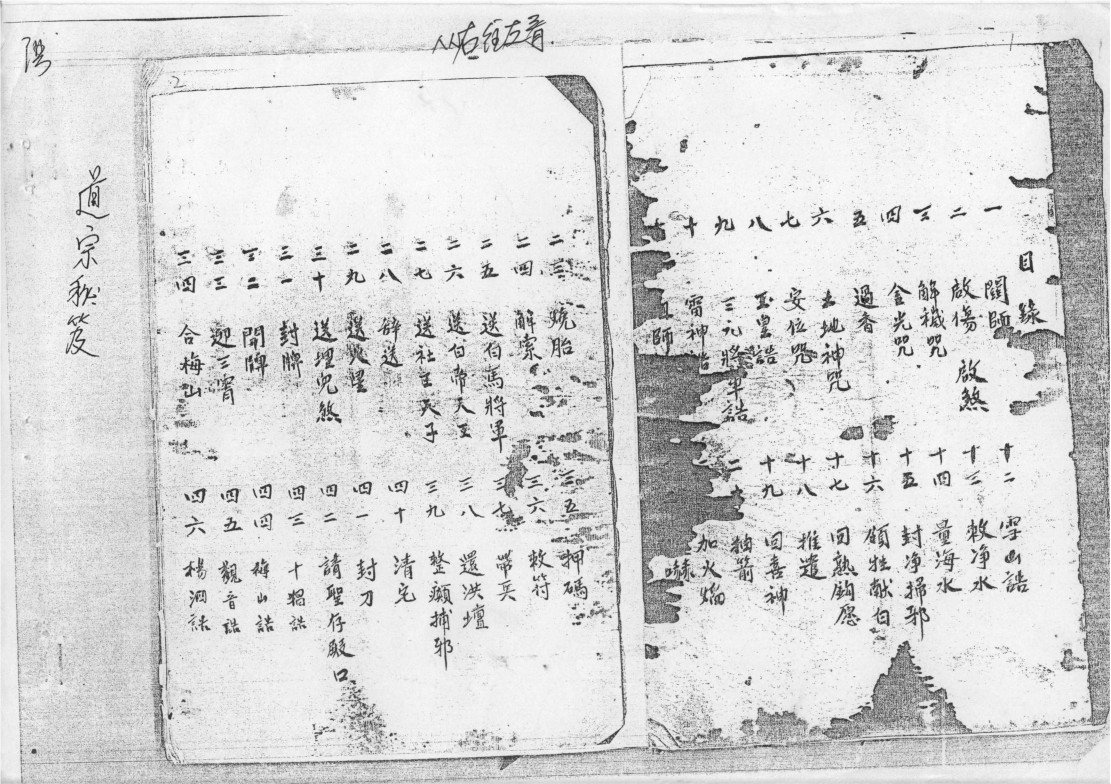 从右往左看
1
目錄
一 關師
二 啟傷 啟煞
三 解穢咒
四 金光咒
五 過香
六 土地神咒
七 安位咒
八 玉皇誥
九 三元將軍誥
十 雷神誥
師
十二 雪山誥
十三 敕净水
十四 量海水
十五 封净掃邪
十六 領牲献白
十七 回熟鈎愿
十八 推遣
十九 回喜神
二十 抽箭
加火焰
2
二三 燒胎
二四 解索
二五 送白馬將軍
二六 送白帝天王
二七 送社王天子
二八 辞送
二九
三十 送埋兒煞
三一 封牌
三二 開牌
三三 迎三霄
三四 合梅山
三五 押碼
三六 敕符
三七 帶兵
三八 還洪壇
三九 整癲捕邪
四十 清宅
四一 封刀
四二 請聖仔殿口
四三 十猖誥
四四 梅山誥
四五 觀音誥
四六 楊泗誥
道宗秘笈